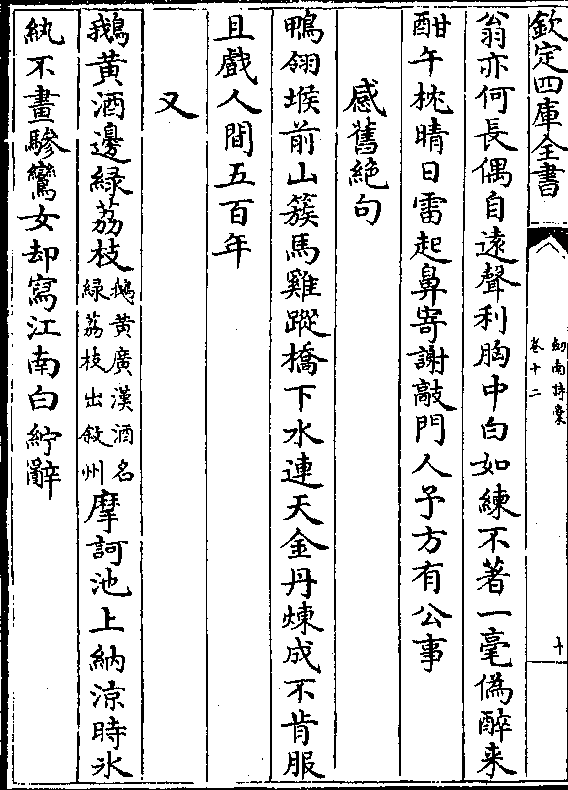 欽定四庫全書
劍南詩稾
卷十二
十
翁亦何長偶自遠聲利胸中白如練不著一毫偽醉来
酣午枕晴日雷起鼻寄謝敲門人予方有公事
感舊絶句
鴨翎堠前山簇馬雞蹤橋下水連天金丹煉成不肯服
且戲人間五百年
又
鵝黄酒邊綠荔枝鵝黄廣漢酒名綠荔枝出敘州摩訶池上納涼時氷
紈不畫驂鸞女却寫江南白紵辭